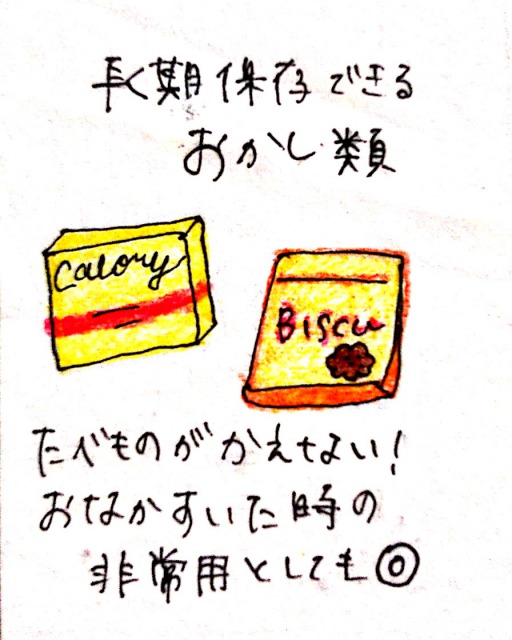 長期保存できる
おかし類
Calory
Biscu
たべものがかえない!
おなかすいた時の
非常用としても◎